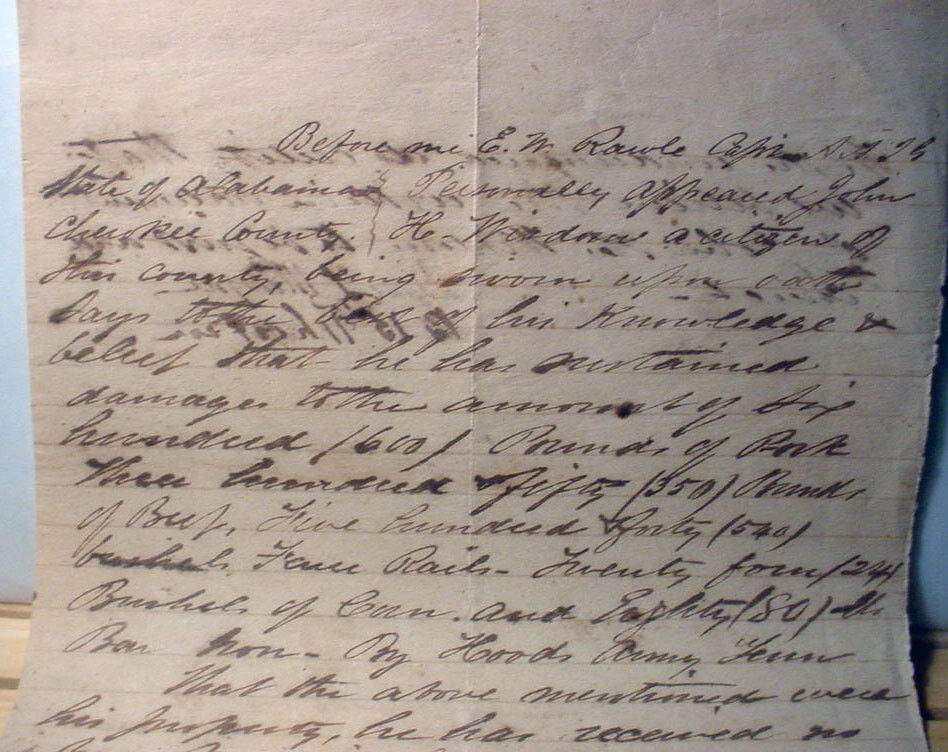 Before me E. W. Rawle Capt. A. A. I. G
State of Alabama } Personally appeared John
Cherokee County. } H. Wisdom a citizen of
this county, being sworn upon oath
Says to the best of his Knowledge &
belief that he has sustained
damages to the amount of Six
hundred (600) Pounds of Pork
three hundred & fifty (350) Pounds
of Beef, Five hundred & forty (540)
Fence Rails - Twenty four (24)
Bushels of Corn. and Eighty (80) lbs
Bar Iron - By Hoods Army Tenn
That the above mentioned were
his property, he has received no